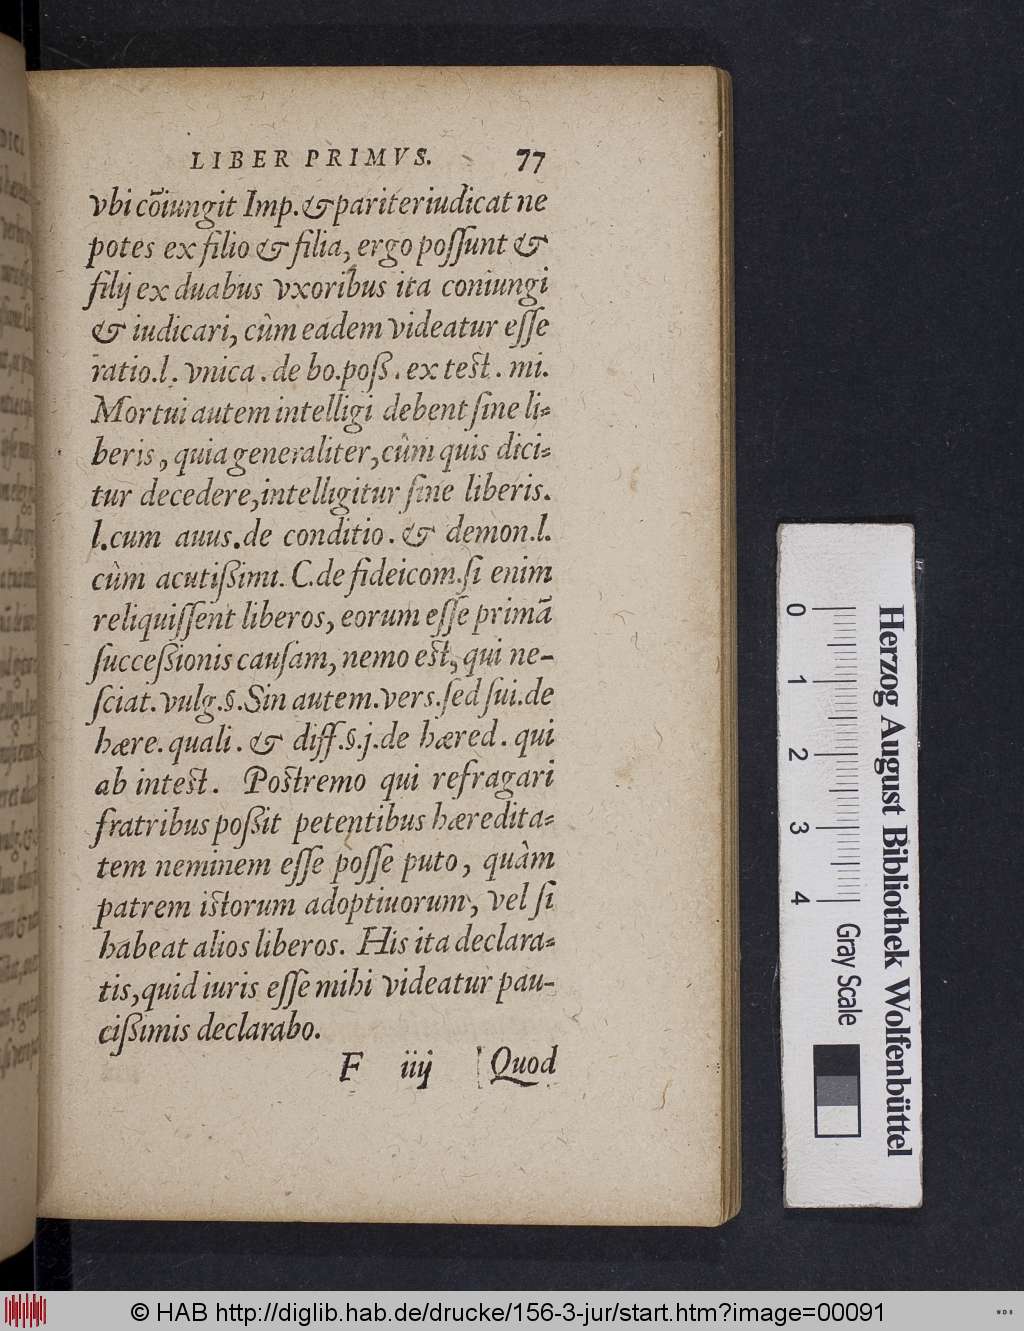 LIBER PRIMVS. 77
vbi cõiungit Imp. & pariter iudicat ne
potes ex filio & filia, ergo poſſunt &
filij ex duabus vxoribus ita coniungi
& iudicari, cùm eadem videatur eſſe
ratio. l. vnica. de bo. poß. ex test. mi.
Mortui autem intelligi debent ſine li-
beris, quia generaliter, cûm quis dici-
tur decedere, intelligitur ſine liberis.
l. cum auus. de conditio. & demon. l.
cùm acutißimi. C. de fideicom. ſi enim
reliquiſſent liberos, eorum eſſe primã
succeßionis cauſam, nemo est, qui ne-
ſciat. vulg. §. Sin autem. verſ. ſed ſui. de
hære. quali. & diff. §. j. de hæred. qui
ab intest. Postremo qui refragari
fratribus poßit petentibus hæredita-
tem neminem eſſe poſſe puto, quàm
patrem istorum adoptiuorum, vel ſi
habeat alios liberos. His ita declara-
tis, quid iuris eſſe mihi videatur pau-
cißimis declarabo.
F iiij Quod
0 1 2 3 4
Herzog August Bibliothek Wolfenbüttel
Gray Scale
© HAB http://diglib.hab.de/drucke/156-3-jur/start.htm?image=00091